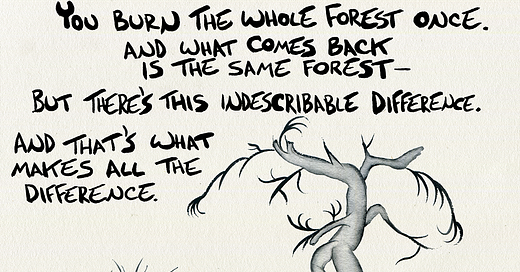 YOU BURN THE WHOLE FOREST ONCE.
AND WHAT COMES BACK
IS THE SAME FOREST—
BUT THERE'S THIS INDESCRIBABLE DIFFERENCE.
AND THAT'S WHAT
MAKES ALL THE
DIFFERENCE.